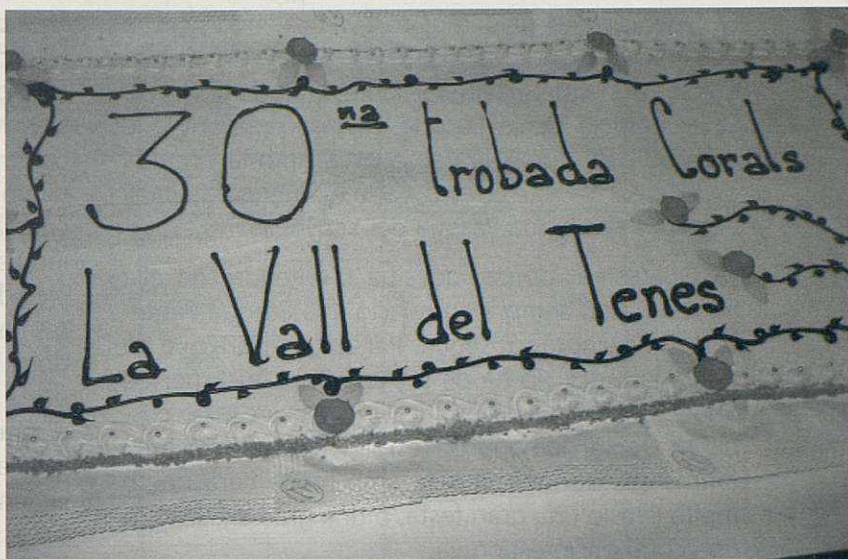 30na trobada Corals
La Vall del Tenes